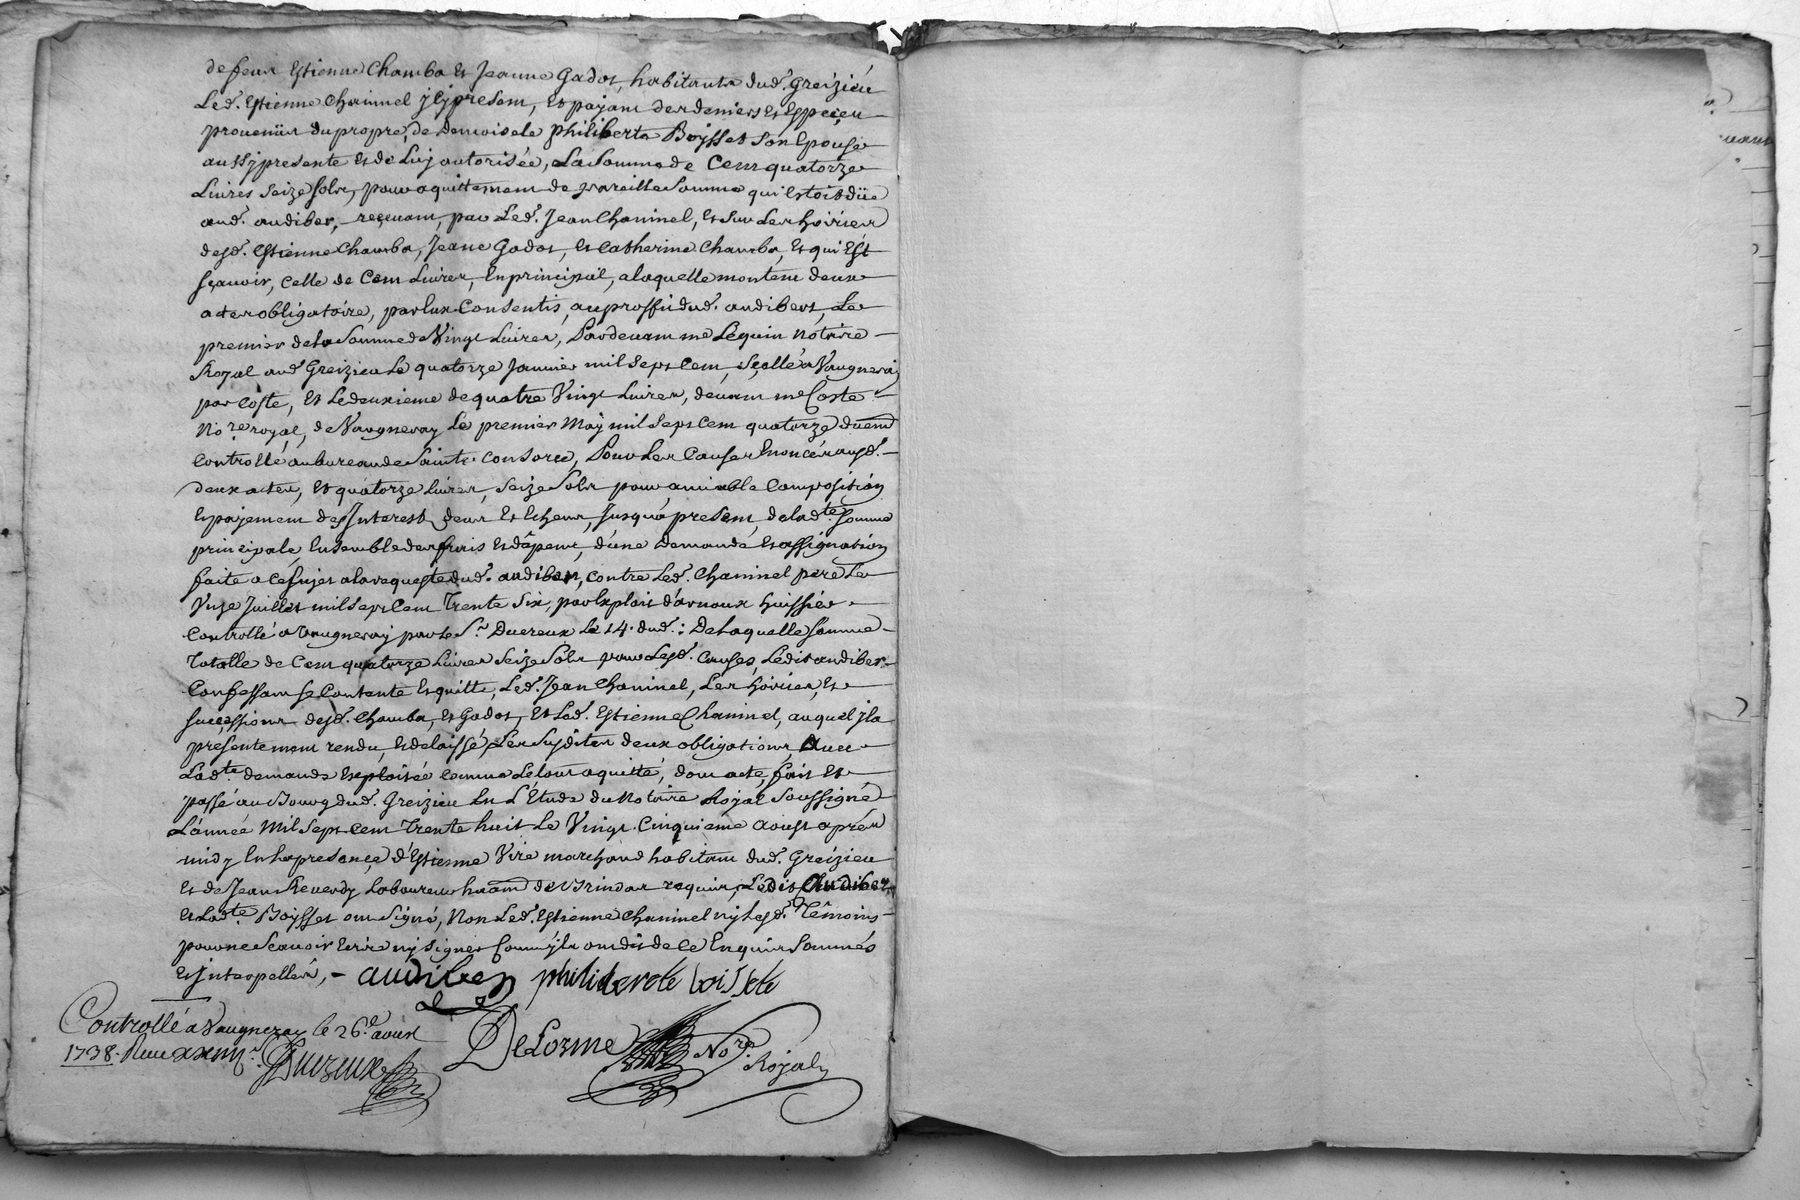 de feux Estienne Chamba et Jeanne Gadot, habitants dud. Greizieu
Led. Estienne Chaninel jcy present, et payant des deniers et Especeu
provenu du propre, de Demoiselle philiberte Boysset son Epouse
aussy presente et de Luy autorisée, La Somme de Cent quatorze
Livres seize sols, pour aquittement de pareille Somme qui Estoit düe
aud. audiber, reçevant, par Led. Jean Chaninel, et sur Les hoiries
desd. Estienne Chamba, Jeane Gadot, et Catherine Chamba, et qui Est
sçavoir, celle de Cent Livres, En principal, a laquelle montent deux
actes obligatoire, par Eux Consentis, au proffit dud. audibert, Le
premier de la Somme de Vingt Livres, Pardevant me Lequin Notaire
Royal aud. Greizieu Le quatorze Janvier mil Sept Cent, Sçellé a Vaugneray
par Coste, et Le deuxieme de quatre Vingt Livres, devant me Coste
No.re royal, de Vaugneray Le premier May mil Sept Cent quatorze duem.t
Controllé au bureau de Sainte Consorce, Pour Les Causes Enoncér ausd.
deux acteu, et quatorze Livres, Seize Sols pour amiable Composition
Et payement des Interest deus et Echeus, Jusqu'a present, de lad.te Somme
principale, Ensemble des frais et dépens, d'une demande et assignation
faite a ce sujet a la requeste dud. audiber, contre Led. Chaninel pere Le
Unze Juillet mil Sept Cent Trente Six, par Exploit d'arnoux huissier
Controllé a Vaugneray par Le S.r Ducreux Le 14. dud.: De Laquelle Somme
Totalle de Cent quatorze Livres Seize Sols pour Lesd. Causes, Ledit audiber
Confessant se Contente et quitte, Led. Jean Chaninel, Les hoiries, et
successions desd. Chamba, et Gadot, et Led. Estienne Chaninel, auquel jl a
presentement rendu, et delaissé, Les Susdites deux obligations avec
Lad.te demande Exploitée comme Le tout aquitté, dont acte, fait et
passé au Bourg dud. Greizieu En L'Étude du Notaire Royal Soussigné
L'année Mil Sept Cent Trente huit Le Vingt Cinquieme aoust aprés
midy En la presence, d'Estienne Viré marchand habitant dud. Greizieu
et de Jean Reverdy Laboureur habitant de Brindas requis, Ledit Audiber
et Lad.te Boysset ont Signé, Non Led. Estienne Chaninel ny Lesd. Témoins
pour ne Scavoir Ecrire ny Signer Comm'jls ont dit de ce Enquis Sommés
et Interpellés, - audiber philiberte boissete
Controllé a Vaugneray le 26.e aoust
1738. Receu
Ducreux
DeLorme No.re Royal